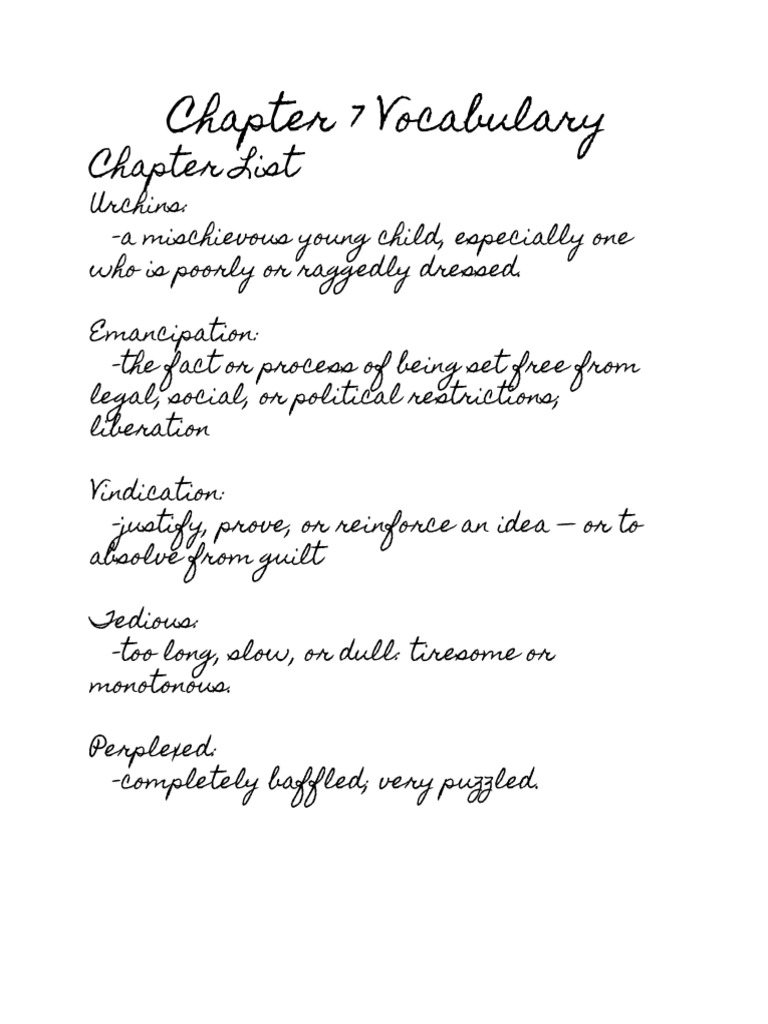 Chapter 7 Vocabulary
Chapter List
Urchins:
-a mischievous young child, especially one
who is poorly or raggedly dressed.
Emancipation:
-the fact or process of being set free from
legal, social, or political restrictions;
liberation
Vindication:
-justify, prove, or reinforce an idea — or to
absolve from guilt
Tedious:
-too long, slow, or dull: tiresome or
monotonous.
Perplexed:
-completely baffled; very puzzled.